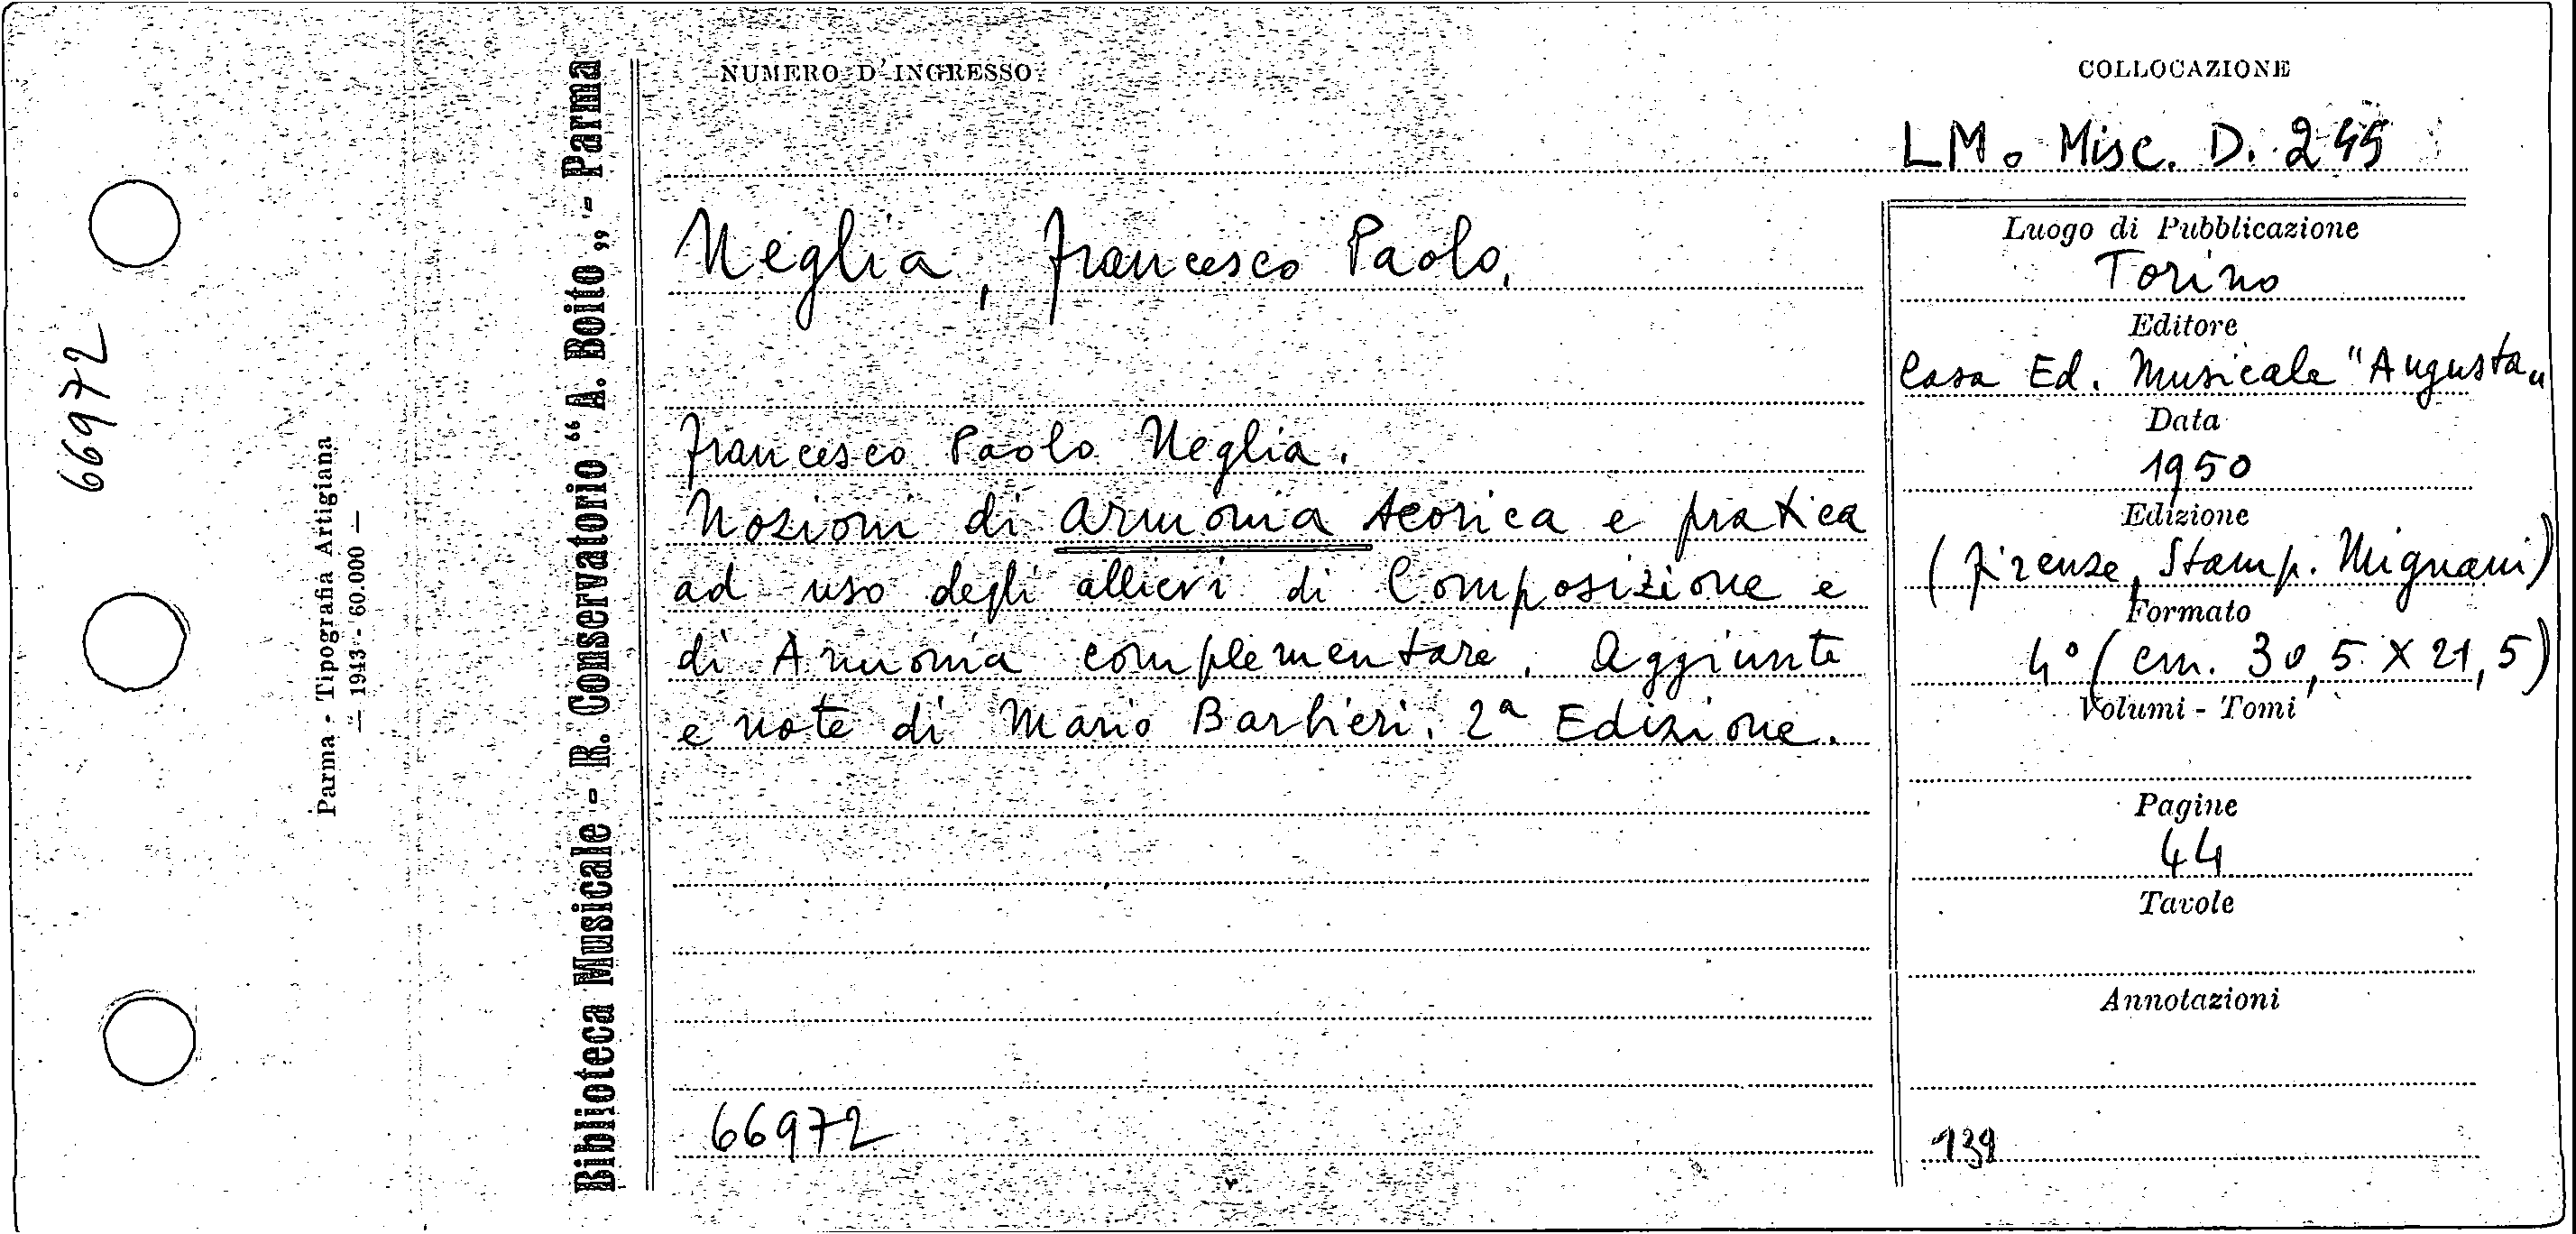 NUMERO D'INGRESSO
COLLOCAZIONE
LM. Misc. D. 245
Neglia, Francesco Paolo,
Francesco Paolo Neglia.
Nozioni di armonia teorica e pratica
ad uso degli allievi di Composizione e
di Armonia complementare. Aggiunte
e note di Mario Barbieri. 2ª Edizione.
66972
Luogo di Pubblicazione
Torino
Editore
Casa Ed. Musicale "Augusta"
Data
1950
Edizione
(Firenze, Stamp. Mignani)
Formato
4° (cm. 30,5 X 21,5)
Volumi - Tomi
Pagine
44
Tavole
Annotazioni
139
Biblioteca Musicale - R. Conservatorio “ A. Boito „ - Parma
Parma - Tipografia Artigiana
— 1943 - 60.000 —
66972